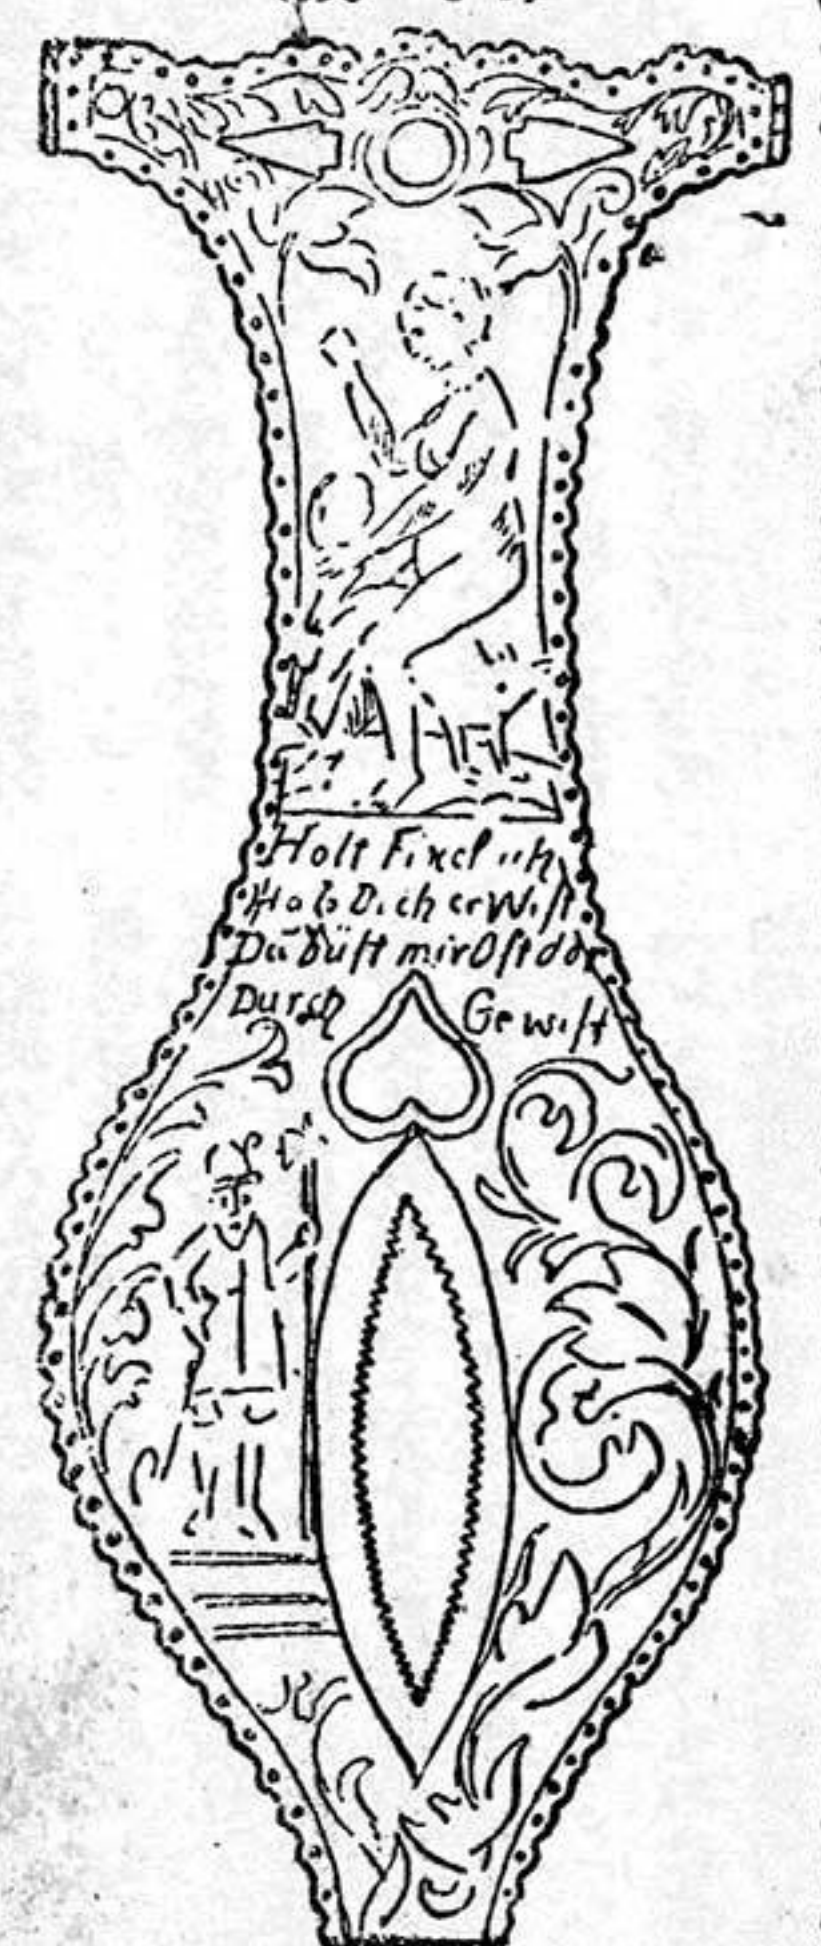 Holt Fixel ich
Hab Dich erWist
mir Oft
Durch Gewist